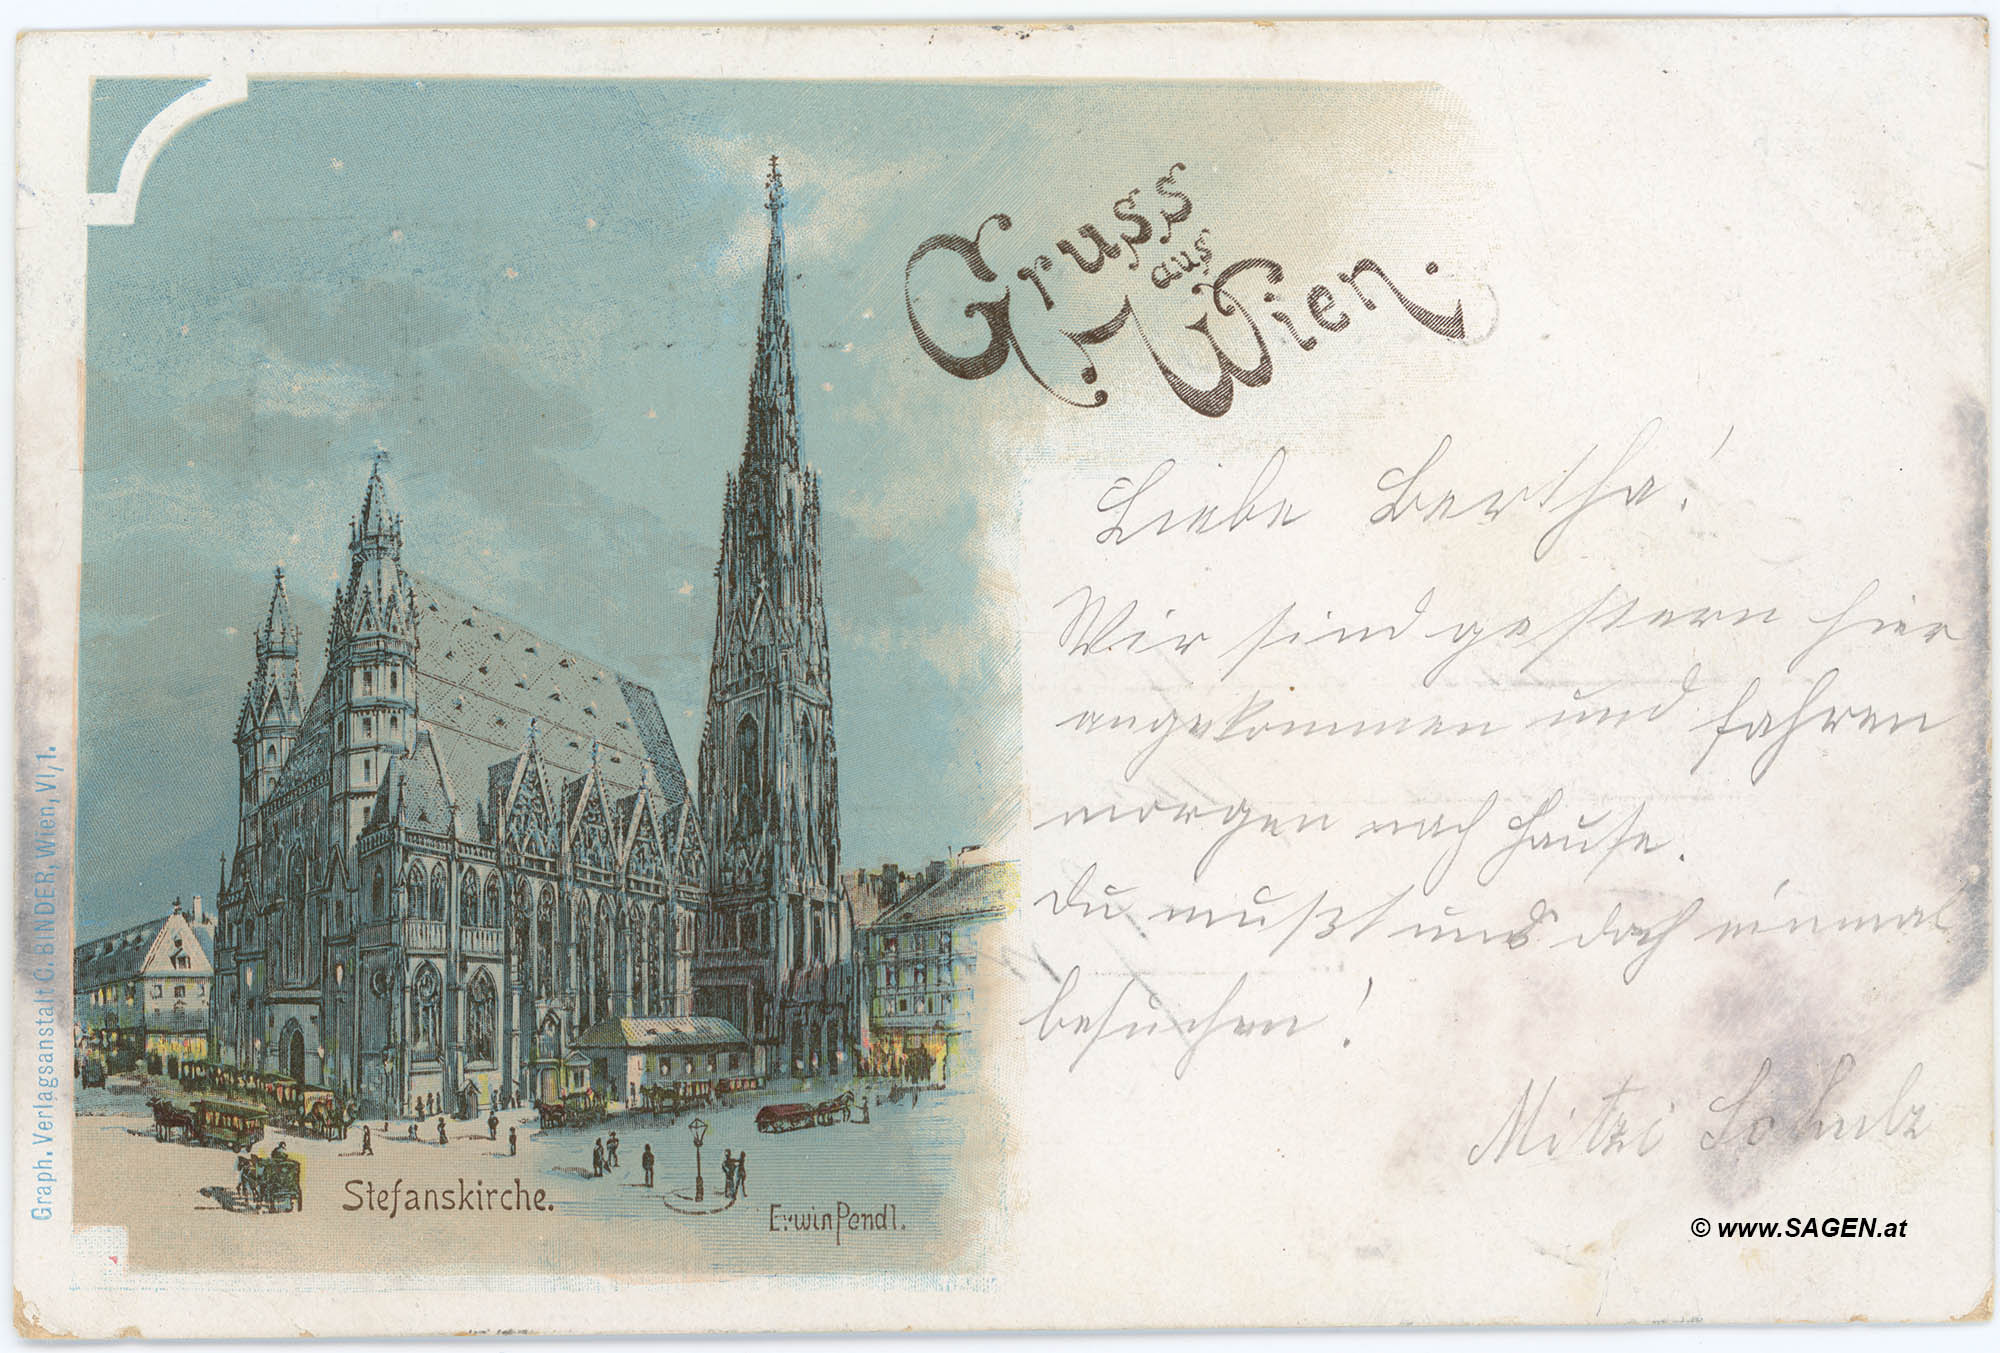 Gruss
aus
Wien.
Liebe Bertha!
Wir sind gestern hier
angekommen und fahren
morgen nach Hause.
Du mußt uns doch einmal
besuchen!
Mitzi Schulz
Stefanskirche.
Erwin Pendl.
Graph. Verlagsanstalt C. BINDER, Wien, VI/1.
© www.SAGEN.at